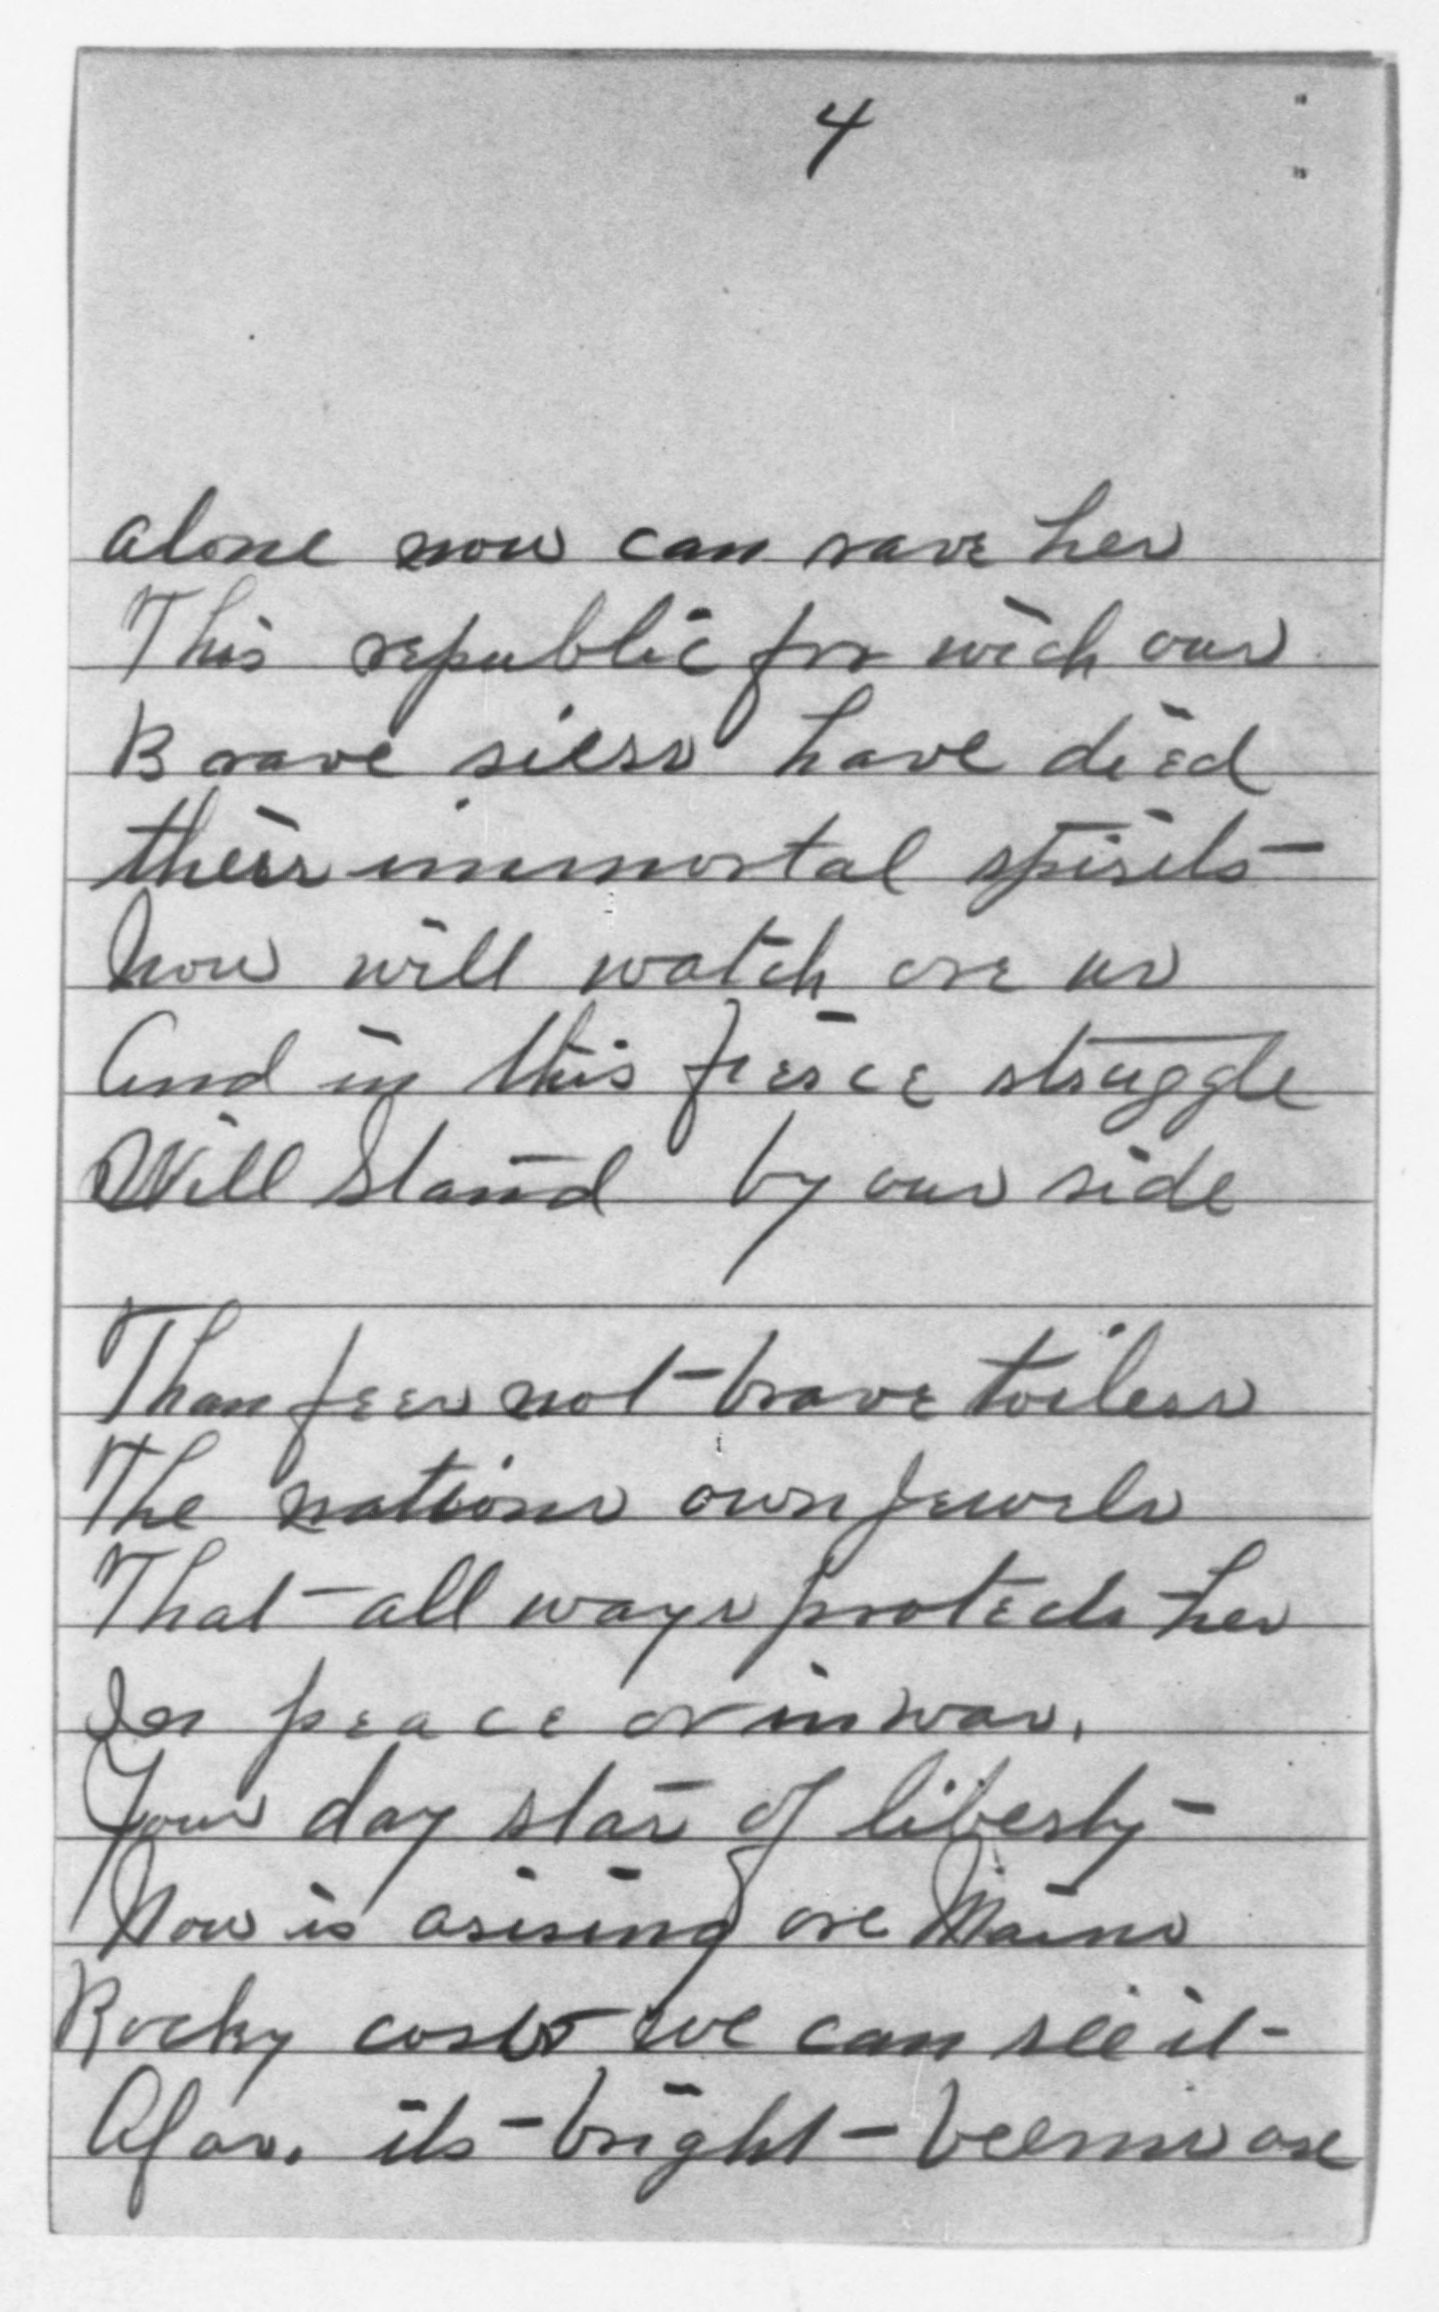 4
alone now can save her
This republic for wich our
Brave siers have died
theirs immortal spirits
Now will watch ore us
And in this fierce struggle
Will Stand by our side
Than feer not brave toilers
The nations own Jewels
That all ways protects her
In peace or in war.
Your day star of liberty
Now is arising ore Mains
Rocky cost we can see it
Afar. its bright beems are